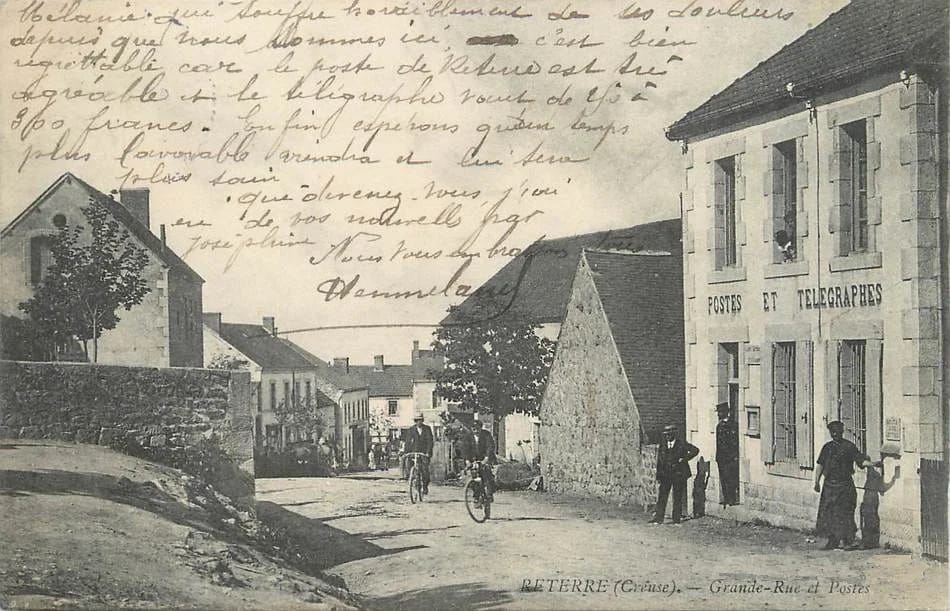 Mélanie qui souffre horriblement de ses douleurs
depuis que nous sommes ici, c'est bien
regrettable car le poste de Reterre est très
agréable et le télégraphe vaut de 250 à
300 francs. Enfin espérons qu'un temps
plus favorable viendra et lui sera
plus sain
que devenez vous, j'ai
eu de vos nouvelle par
Joséphine
Nous vous embrassons tous
POSTES ET TELEGRAPHES
RETERRE (Creuse). — Grande-Rue et Postes